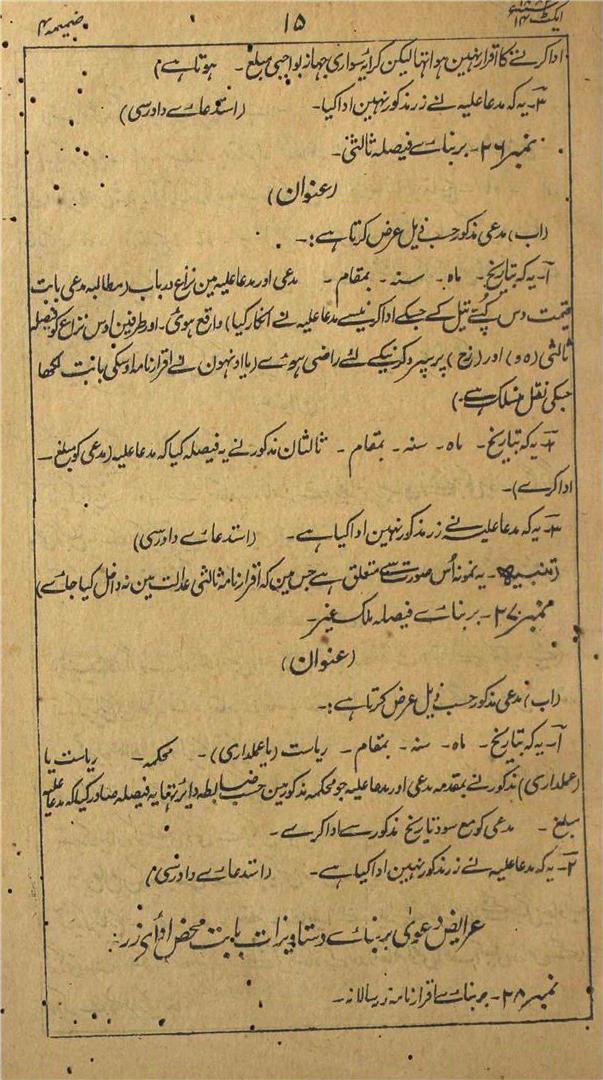 ضمیمہ ۴ ۱۵ ایکٹ ۱۴
ادا کرنے کا اقرار نہین ہوا تہا لیکن کرایہ سواری جہاز بواجبی مبلغ - ہوتا ہے)
۳ - یہ کہ مدعا علیہ نے زر مذکور نہین ادا کیا - (استدعاے دادرسی)
نمبر ۲۶ - بر بناے فیصلہ ثالثی -
(عنوان)
(اب) مدعی مذکور حسب ذیل عرض کرتا ہے :-
۱ - یہ کہ بتاریخ - ماہ - سنہ - بمقام - مدعی اور مدعا علیہ مین نزاع درباب (مطالبہ مدعی بابت
قیمت دس کپے تیل کے جسکے ادا کرنیسے مدعا علیہ نے انکار کیا) واقع ہوئی - اور طرفین اوس نزاع کو فیصلہ
ثالثی (ہ و) اور (ز ح) پر سپرد کرنیکے لئے راضی ہوے (یا اونہون نے اقرارنامہ اوسکی بابت لکھا
جسکی نقل منسلک ہے -)
۲ - یہ کہ بتاریخ - ماہ - سنہ - بمقام - ثالثان مذکور نے یہ فیصلہ کیا کہ مدعا علیہ (مدعی کو مبلغ -
ادا کرے) -
۳ - یہ کہ مدعا علیہ نے زر مذکور نہین ادا کیا ہے - (استدعاے دادرسی)
(تنبیہ - یہ نمونہ اُس صورت سے متعلق ہے جس مین کہ اقرارنامہ ثالثی عدالت مین نہ داخل کیا جاے)
نمبر ۲۷ - بر بناے فیصلہ ملک غیر -
(عنوان)
(اب) مدعی مذکور حسب ذیل عرض کرتا ہے :-
۱ - یہ کہ بتاریخ - ماہ - سنہ - بمقام - ریاست (یا عملداری) - محکمہ - ریاست یا
(عملداری) مذکور نے بمقدمہ مدعی اور مدعا علیہ جو محکمہ مذکور مین حسب ضابطہ دایر تہا یہ فیصلہ صادر کیا کہ مدعا علیہ
مبلغ - مدعی کو مع سود تاریخ مذکور سے ادا کرے -
۲ - یہ کہ مدعا علیہ نے زر مذکور نہین ادا کیا ہے - (استدعاے دادرسی)
عرایض دعوی بر بناے دستاویزات بابت محض اداے زر
نمبر ۲۸ - بر بناے اقرارنامہ زر سالانہ -